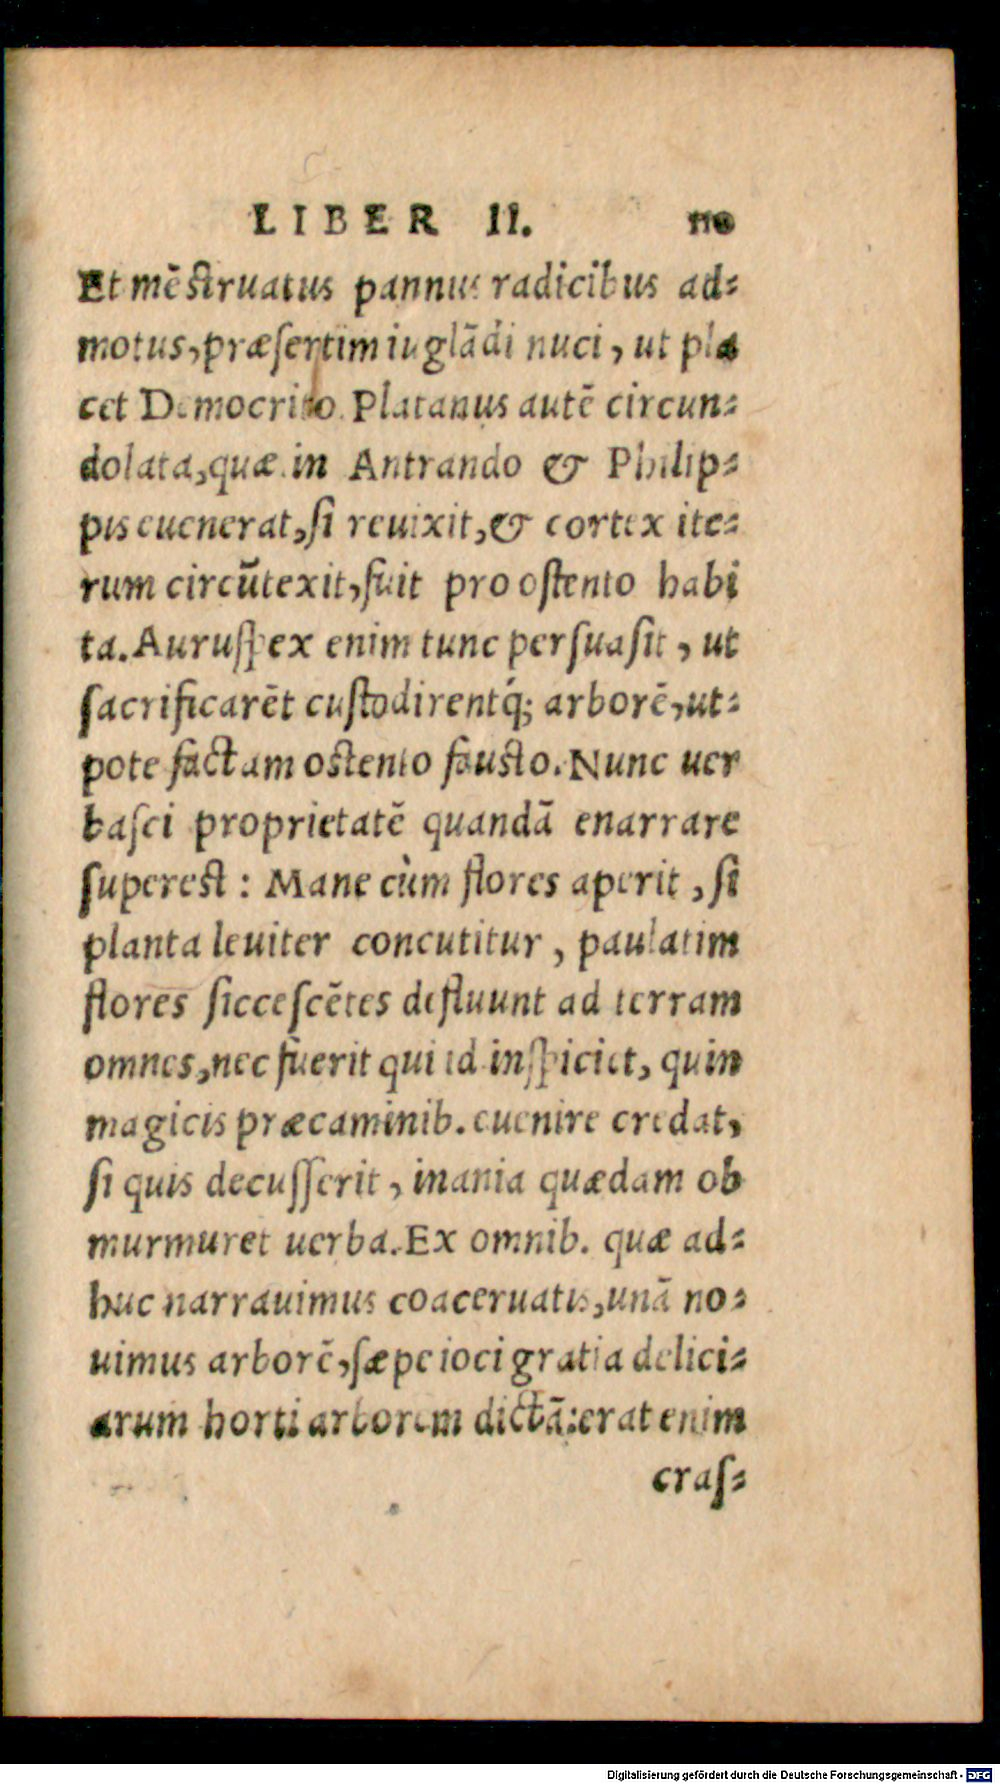 LIBER II. 110
Et mēſtruatus pannus radicibus ad-
motus, præſertim iuglādi nuci, ut pla
cet Democrito. Platanus autē circun-
dolata, quæ in Antrando & Philip-
pis euenerat, ſi reuixit, & cortex ite-
rum circūtexit, fuit pro oſtento habi
ta. Auruſpex enim tunc perſuaſit, ut
ſacrificarēt cuſtodirentq́; arborē, ut-
pote factam oſtento fauſto. Nunc uer
baſci proprietatē quandā enarrare
ſupereſt: Mane cùm flores aperit, ſi
planta leuiter concutitur, paulatim
flores ſicceſcētes defluunt ad terram
omnes, nec fuerit qui id inſpiciet, quin
magicis præcaminib. euenire credat,
ſi quis decuſſerit, inania quædam ob
murmuret uerba. Ex omnib. quæ ad-
huc narrauimus coaceruatis, unā no-
uimus arborē, ſæpe ioci gratia delici-
arum horti arborem dictā: erat enim
craſ-
Digitalisierung gefördert durch die Deutsche Forschungsgemeinschaft - DFG